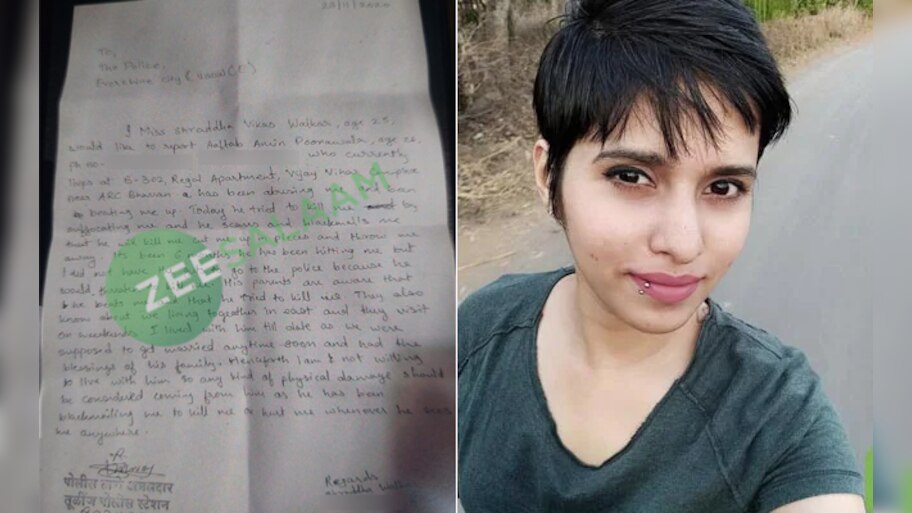 23/11/2020
To,
The Police,
I Miss Shraddha Vikas Walkar, age 25,
would like to report Aaftab Amin Poonawala, age 26,
ph no- who currently
stays at B-302, Regal Apartment, Vijay Vihar
near ARC Bhavan has been abusing me and been
beating me up. Today he tried to kill me by
suffocating me and he scares and blackmails me
that he will kill me, cut me up and throw me
away. Its been he has been hitting me but
I did not have go to the police because he
would His parents are aware that
he beats and that he tried to kill me. They also
know about we living together in and they visit
on weekends. I lived with him till date as we were
supposed to get married anytime soon and had the
blessings of his family. Henceforth I am not willing
to live with him so any kind of physical damage should
be considered coming from him as he has been
blackmailing me to kill me or hurt me whenever he sees
me anywhere.
Regards
पोलीस ठाणे अंमलदार
तूळींज पोलीस स्टेशन
ZEESALAAM